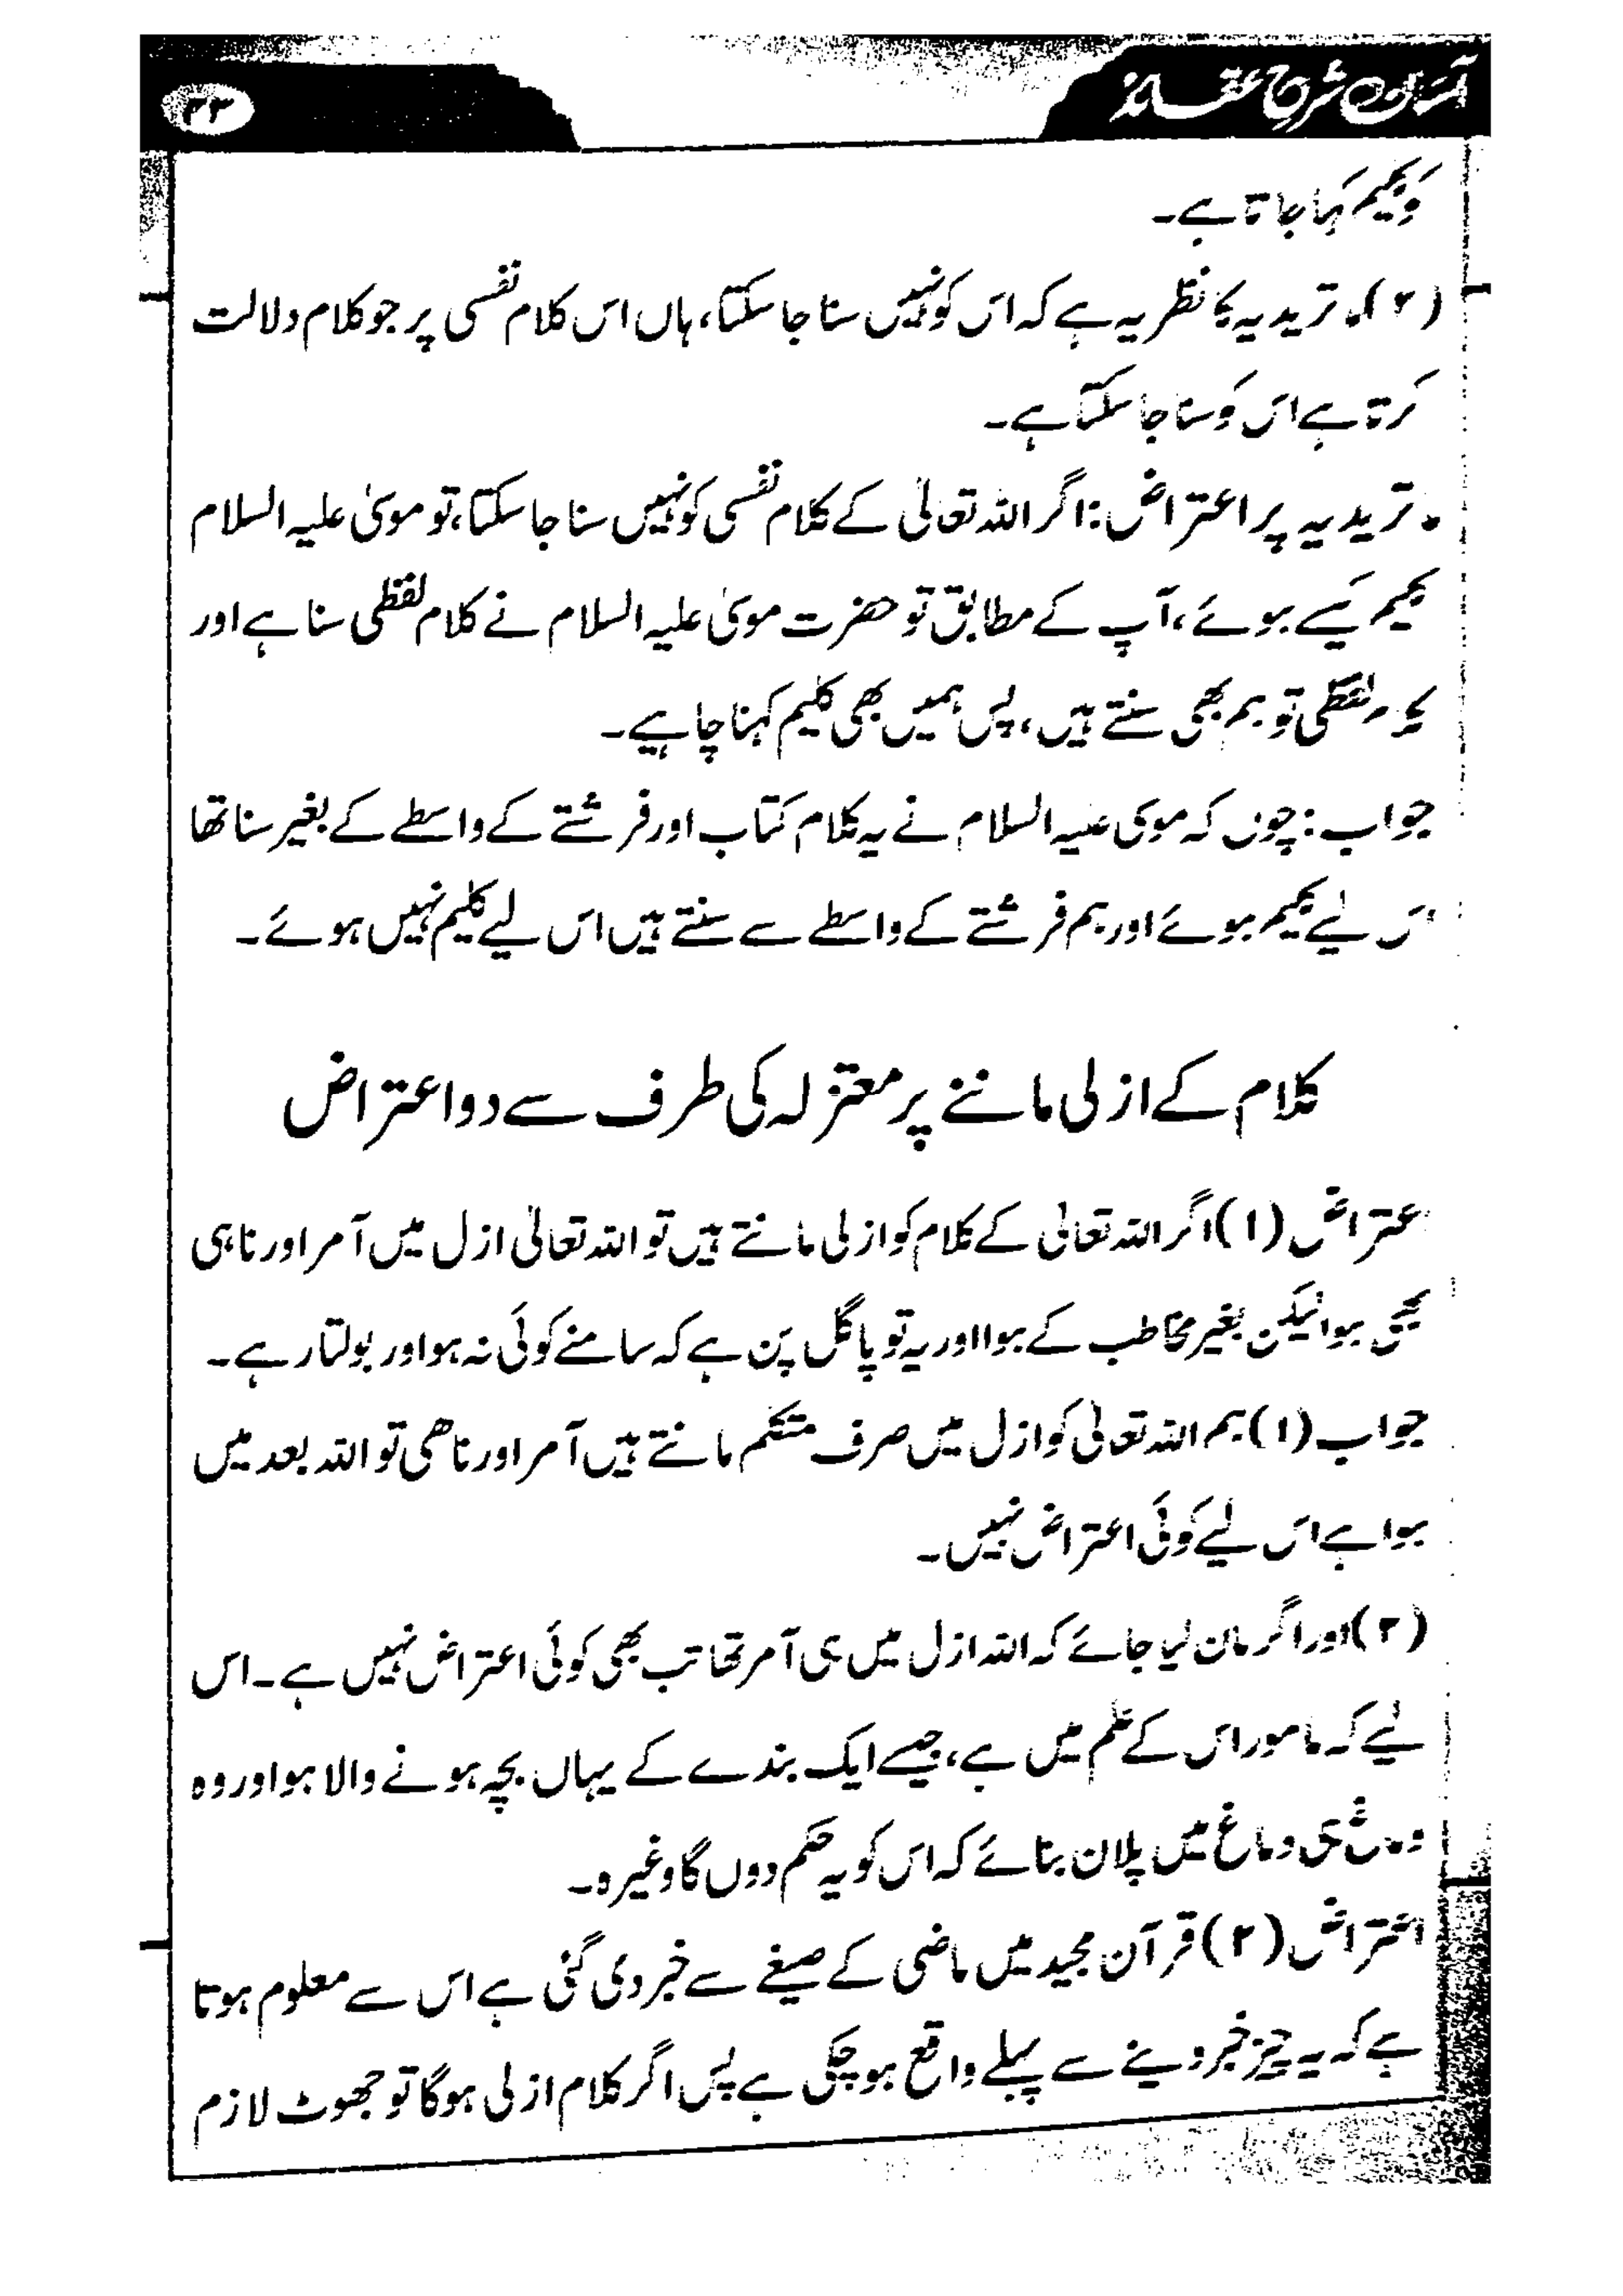 آسان شرح عقائد
کو کلیم کہا جاتا ہے۔
(۲) ماتریدیہ کا نظریہ ہے کہ اس کو نہیں سنا جا سکتا، ہاں اس کلام نفسی پر جو کلام دلالت
کرتا ہے اس کو سنا جا سکتا ہے۔
ماتریدیہ پر اعتراض: اگر اللہ تعالیٰ کے کلام نفسی کو نہیں سنا جا سکتا، تو موسیٰ علیہ السلام
کلیم کیسے ہوئے، آپ کے مطابق تو حضرت موسیٰ علیہ السلام نے کلام لفظی سنا ہے اور
کلام لفظی تو ہم بھی سنتے ہیں، پس ہمیں بھی کلیم کہنا چاہیے۔
جواب: چوں کہ موسیٰ علیہ السلام نے یہ کلام کتاب اور فرشتے کے واسطے کے بغیر سنا تھا
اس لیے کلیم ہوئے اور ہم فرشتے کے واسطے سے سنتے ہیں اس لیے کلیم نہیں ہوئے۔
کلام کے ازلی ماننے پر معتزلہ کی طرف سے دو اعتراض
اعتراض (۱) اگر اللہ تعالیٰ کے کلام کو ازلی مانتے ہیں تو اللہ تعالیٰ ازل میں آمر اور ناہی
بھی ہوا لیکن بغیر مخاطب کے ہوا اور یہ تو پاگل پن ہے کہ سامنے کوئی نہ ہو اور بولتا رہے۔
جواب (۱) ہم اللہ تعالیٰ کو ازل میں صرف متکلم مانتے ہیں آمر اور ناھی تو اللہ بعد میں
ہوا ہے اس لیے کوئی اعتراض نہیں۔
(۲) اور اگر مان لیا جائے کہ اللہ ازل میں ہی آمر تھا تب بھی کوئی اعتراض نہیں ہے۔ اس
لیے کہ مامور اس کے علم میں ہے، جیسے ایک بندے کے یہاں بچہ ہونے والا ہو اور وہ
دماغ میں پلان بنائے کہ اس کو یہ حکم دوں گا وغیرہ۔
اعتراض (۲) قرآن مجید میں ماضی کے صیغے سے خبر دی گئی ہے اس سے معلوم ہوتا
ہے کہ یہ چیز خبر دینے سے پہلے واقع ہو چکی ہے پس اگر کلام ازلی ہوگا تو جھوٹ لازم